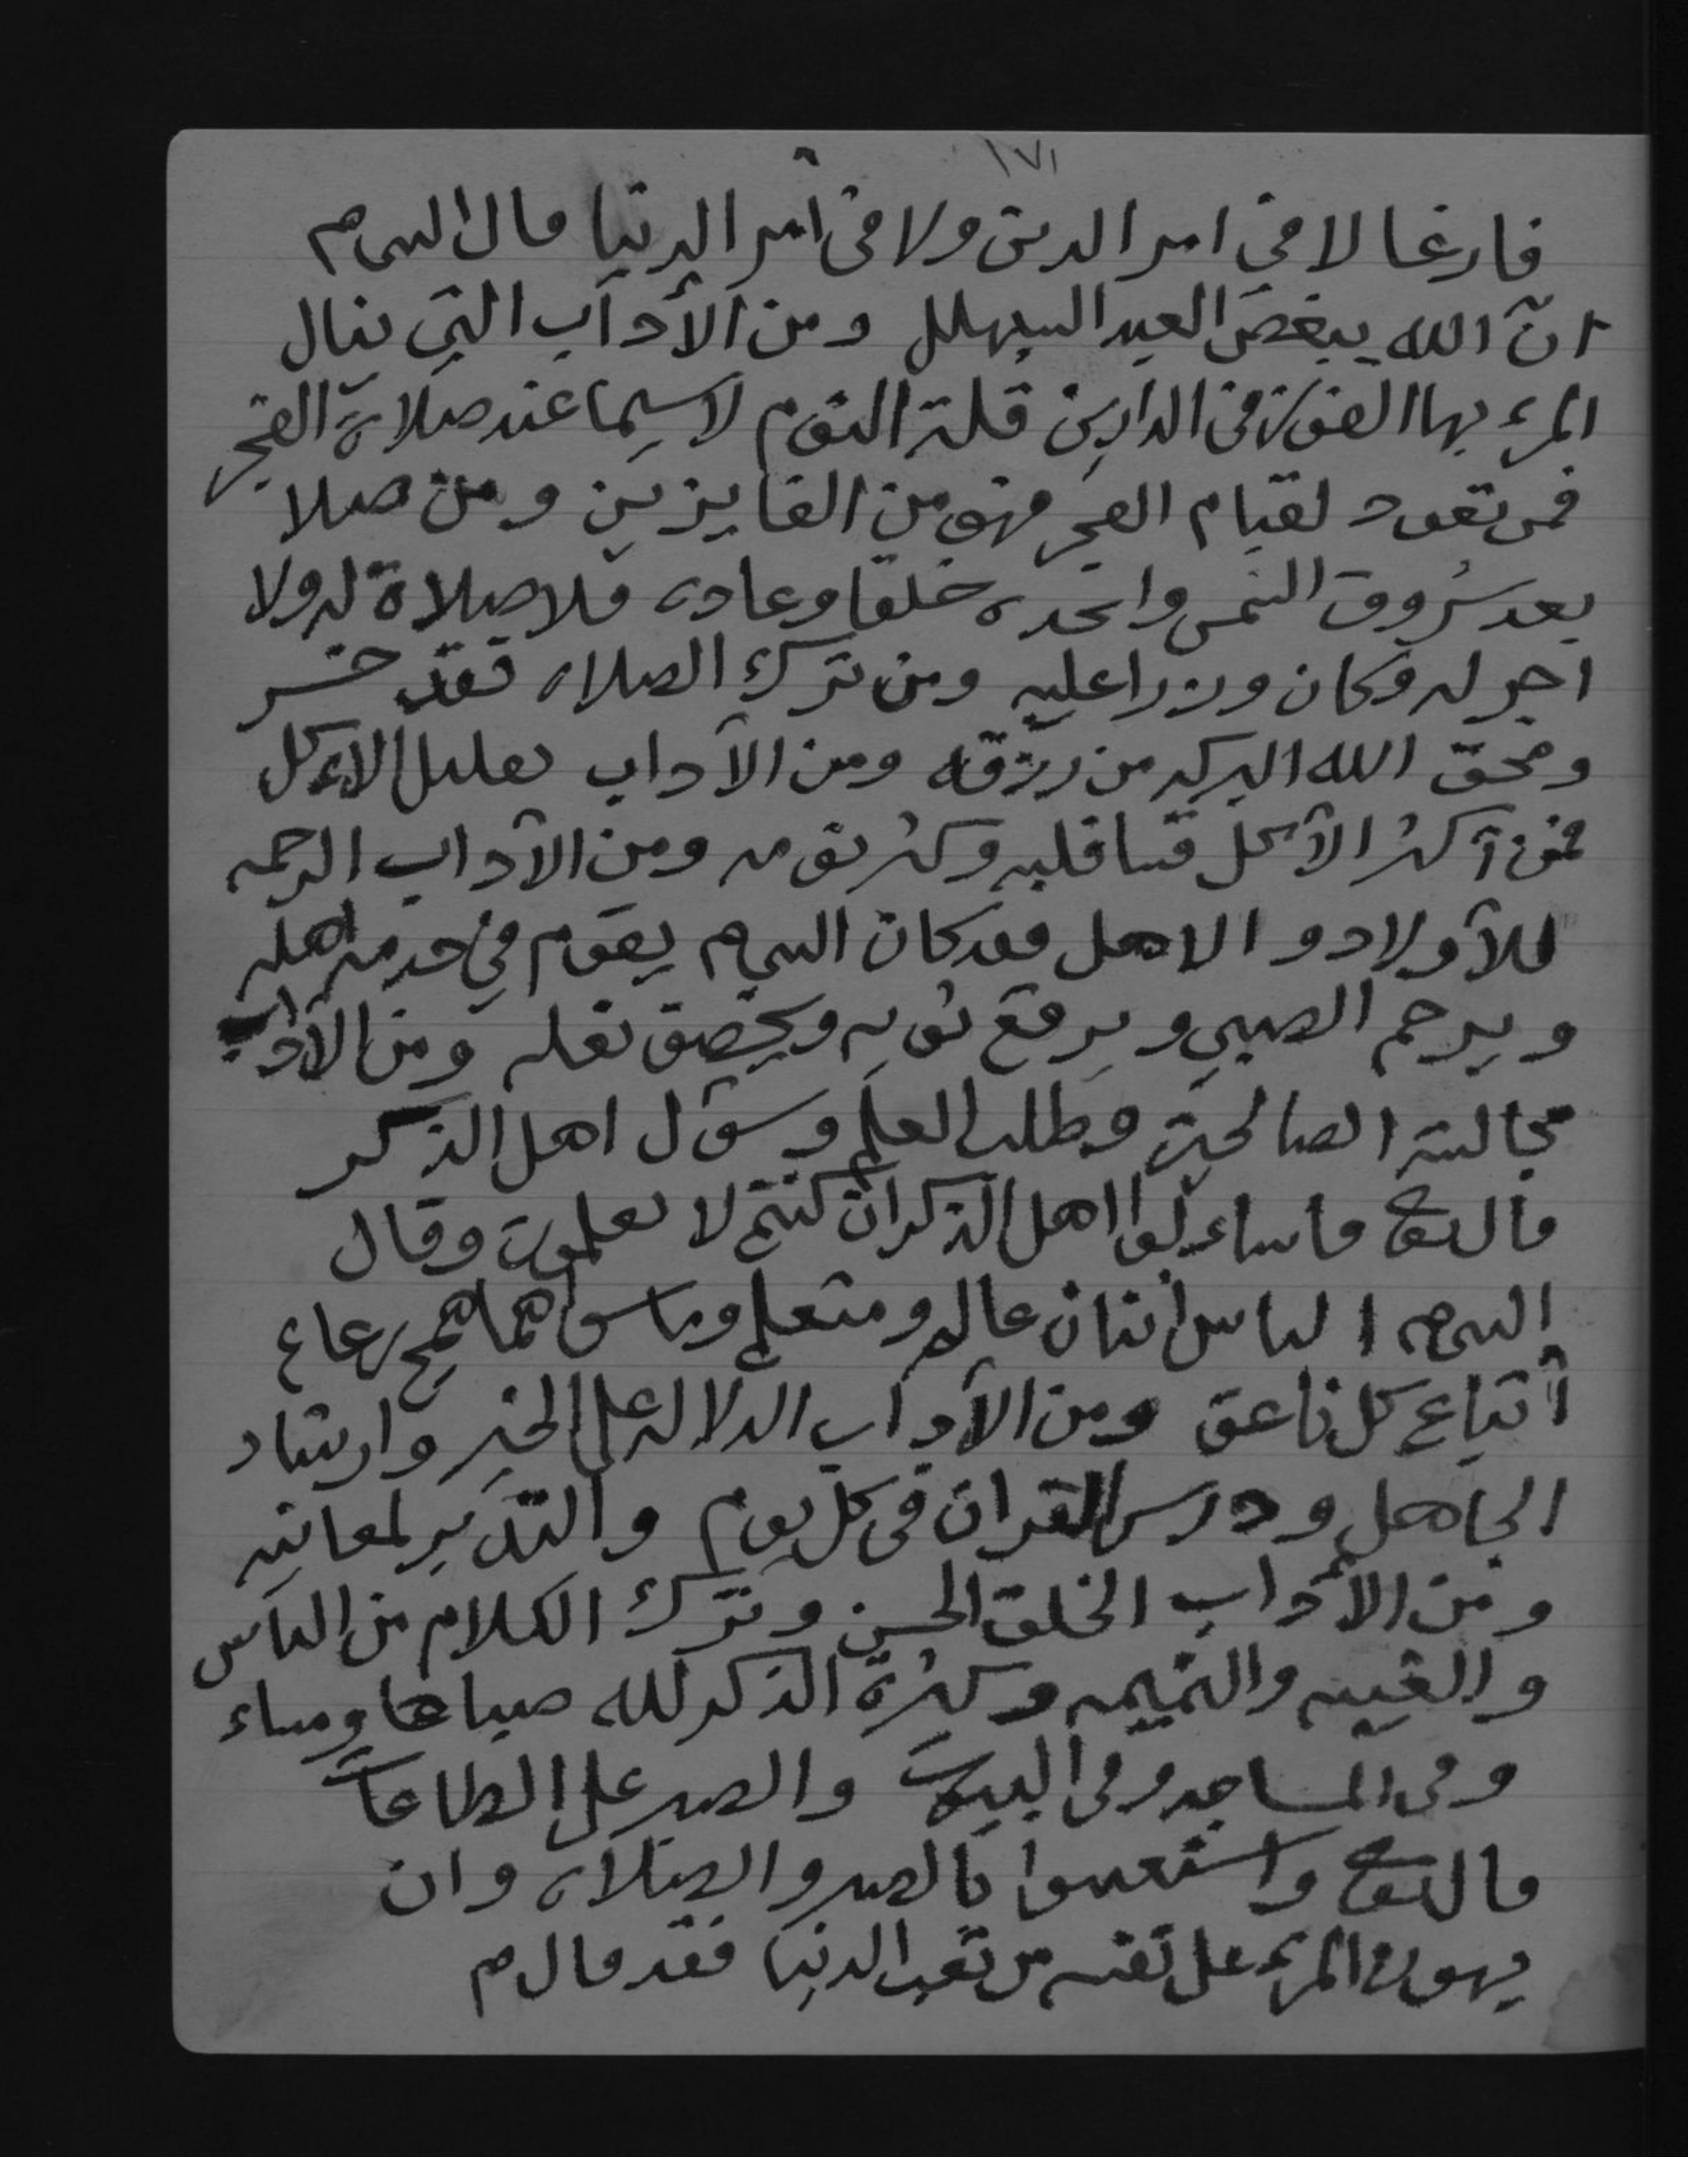 ١٧١
فارغا لا في امر الدين ولا في أمر الدنيا قال النبي م
انّ الله يبغض العبد السبهلل ومن الآدآب التي ينال
المرء بها الفوز في الدارين قلة النوم لاسيما عند صلاة الفجر
فمن تعود لقيام الفجر فهو من الفايزين ومن صلا
بعد شروق الشمس واتخده خلقا وعاده فلا صلاة له ولا
اجر له وكان وزرا عليه ومن ترك الصلاه فقد خسر
ومحق الله البركه من رزقه ومن الآداب تقليل الاءكل
فمن آكثر الآكل قسا قلبه وكثر نومه ومن الآداب الرحمه
للآولاد و الاهل فقد كان النبي م يقوم في خدمة اهله
ويرحم الصبي ويرقع ثوبه ويخصف نعله ومن الآداب
مجالسة الصالحين وطلب العلم وسؤل اهل الذكر
قال تعالى فاساءيلوا اهل الذكر ان كنتم لا تعلمون وقال
النبي م الناس اثنان عالم ومتعلم وماسواهما همج رعاع
أتباع كل ناعق ومن الآدآب الدلاله على الخير وارشاد
الجاهل ودرس القران في كل يوم والتدبر لمعانيه
ومن الآداب الخلق الحسن وترك الكلام من الناس
والغيبه والنميمه وكثرة الذكر لله صباحا ومساء
وفي المساجد وفي البيوت والصبر على الطاعات
قال تعالى واستعينوا بالصبر والصلاه وان
يهون المرء على نفسه من تعب الدنيا فقد قال م